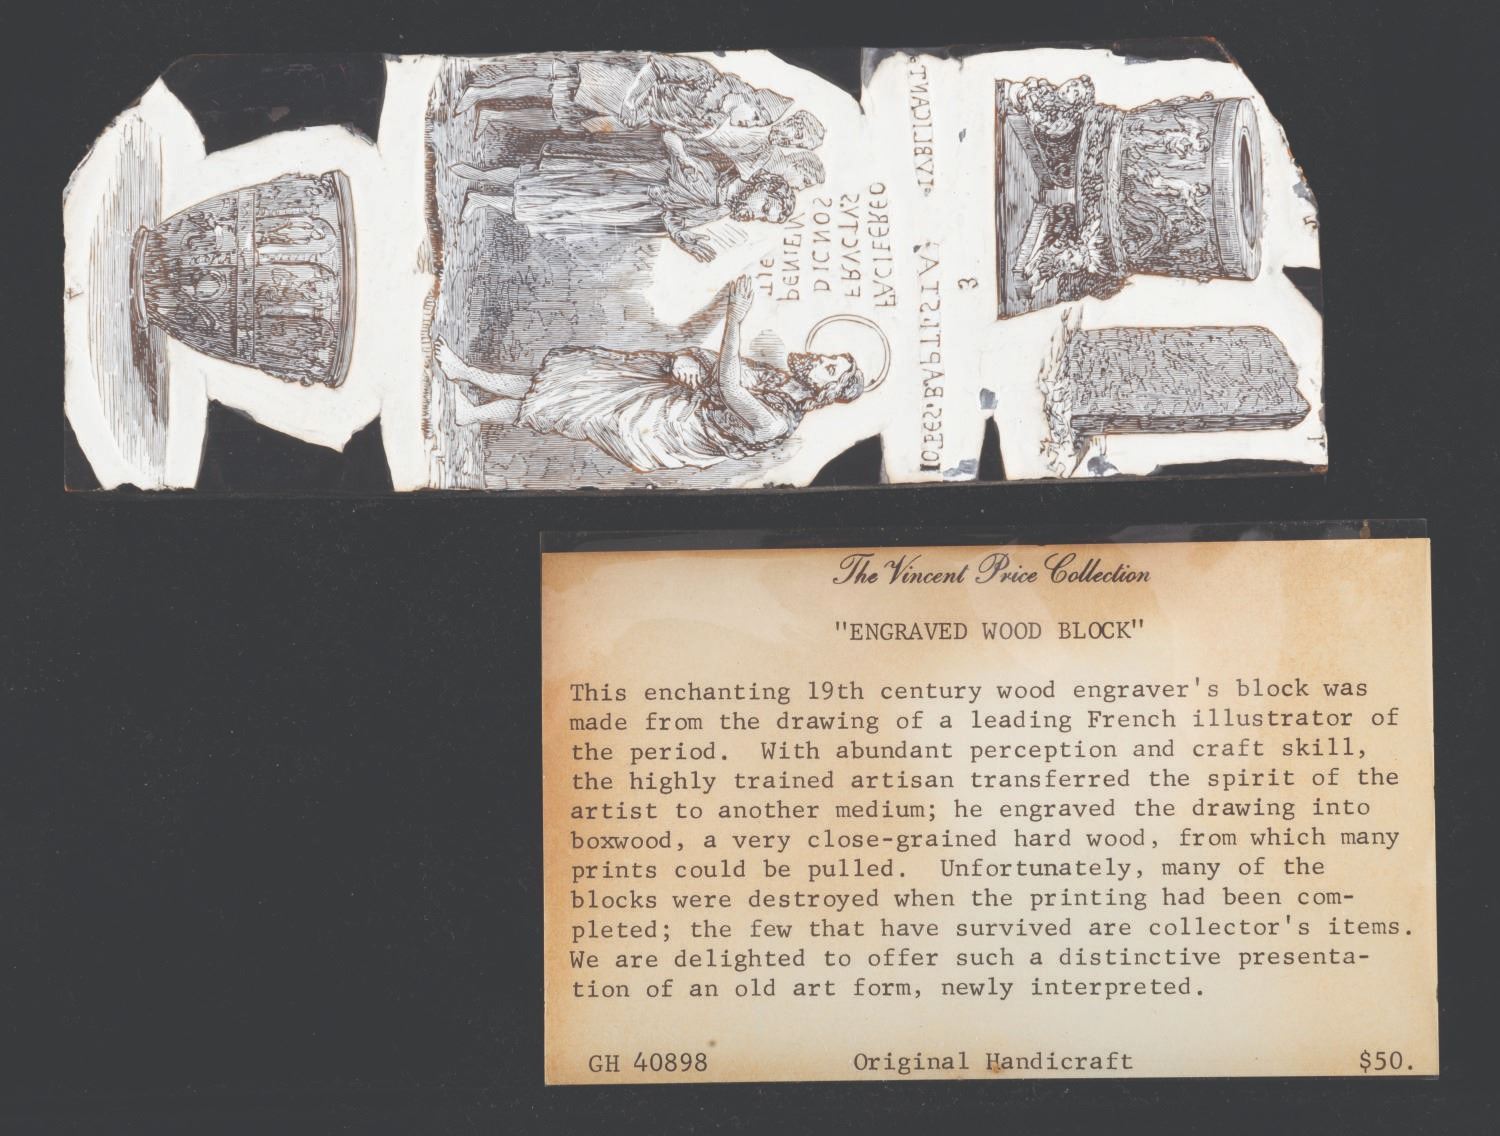 FRVCTVS
DIGNOS
PENITEN
TIE
BAPTISTA
3
The Vincent Price Collection
"ENGRAVED WOOD BLOCK"
This enchanting 19th century wood engraver's block was
made from the drawing of a leading French illustrator of
the period. With abundant perception and craft skill,
the highly trained artisan transferred the spirit of the
artist to another medium; he engraved the drawing into
boxwood, a very close-grained hard wood, from which many
prints could be pulled. Unfortunately, many of the
blocks were destroyed when the printing had been com-
pleted; the few that have survived are collector's items.
We are delighted to offer such a distinctive presenta-
tion of an old art form, newly interpreted.
GH 40898 Original Handicraft $50.